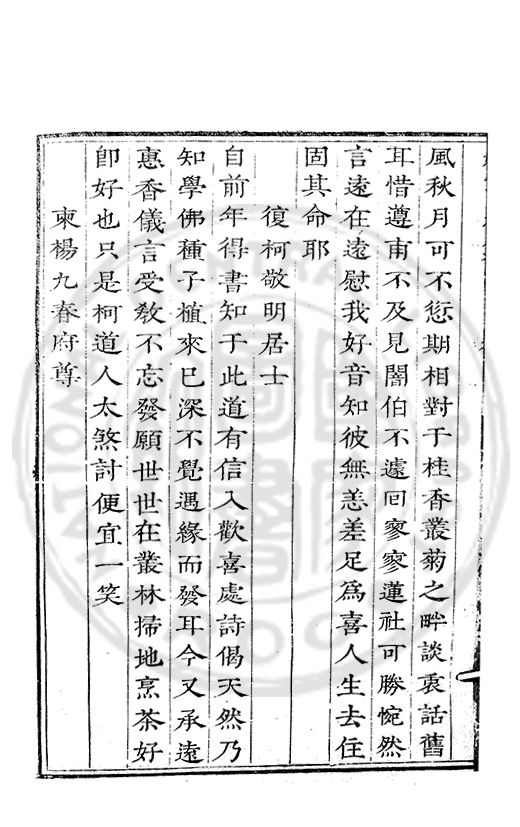 風秋月可不愆期相對于桂香叢菊之畔談衷話舊
耳惜遵甫不及見闇伯不遽回寥寥蓮社可勝惋然
言遠在遠慰我好音知彼無恙差足為喜人生去住
固其命耶
復柯敬明居士
自前年得書知于此道有信入歡喜處詩偈天然乃
知學佛種子植來已深不覺遇緣而發耳今又承遠
惠香儀言受教不忘發願世世在叢林掃地烹茶好
即好也只是柯道人太煞討便宜一笑
柬楊九春府尊